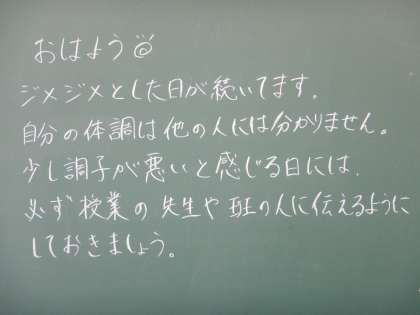 おはよう☺
ジメジメとした日が続いてます。
自分の体調は他の人には分かりません。
少し調子が悪いと感じる日には、
必ず授業の先生や班の人に伝えるように
しておきましょう。